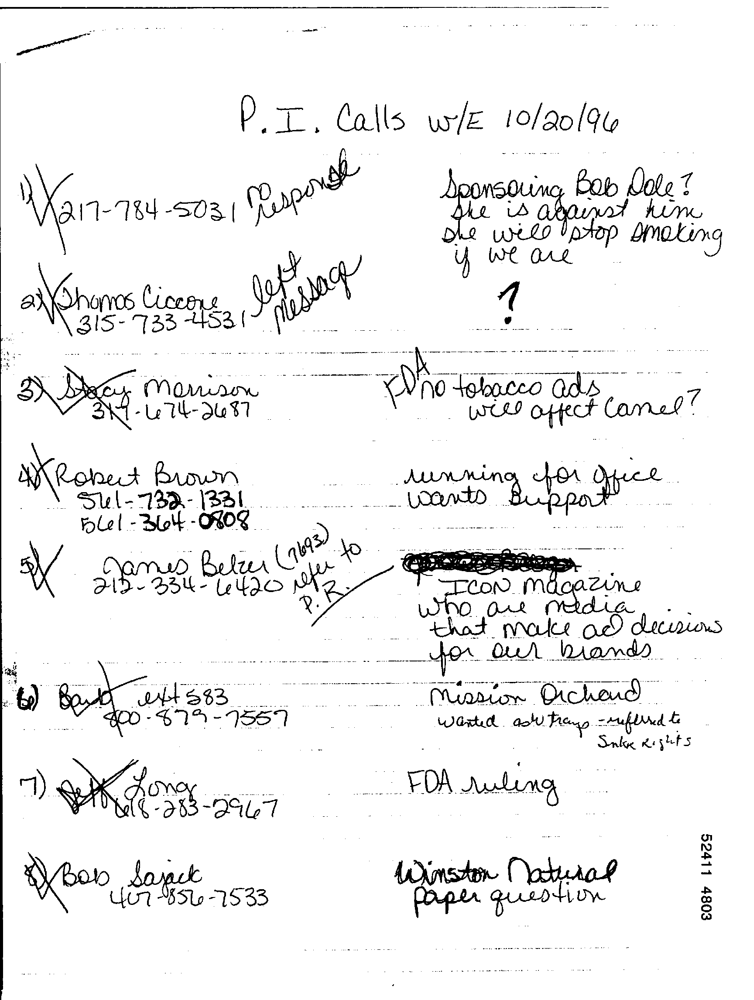 P.I. Calls w/E 10/20/96
1) 217-784-5031 no response
Sponsoring Bob Dole?
She is against him
she will stop smoking
if we are
2) Thomas Ciccone left message
315-733-4531
?
3) Stacy Morrison
317-674-2687
FDA no tobacco ads
will affect Camel?
4) Robert Brown
561-732-1331
561-364-0808
running for office
wants support
5) James Belzer (7693)
212-334-6420 refer to P.R.
ICON magazine
who are media
that make ad decisions
for our brands
6) Barb ext 583
800-879-7557
Mission Orchard
wanted ash trays - referred to
Smkr Rights
7) Jeff Long
618-283-2967
FDA ruling
8) Bob Sajack
407-856-7533
Winston Natural
paper question
52411 4803